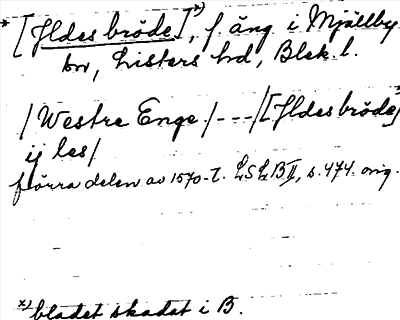 * [Jldes bröde]*), f. äng i Mjällby
sn, Listers hd, Blek. l.
/Westre Enge/---/[Jldes bröde]*)
ij les/
förra delen av 1570-t. LSLB II, s. 474. orig.
*) bladet skadat i B.